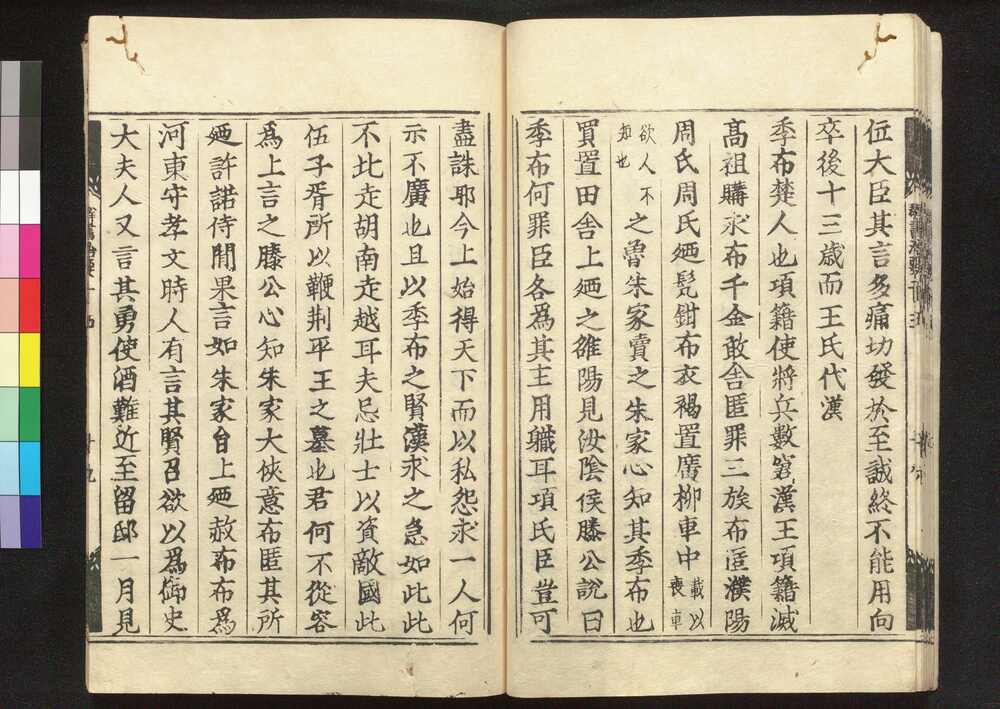 位大臣其言多痛切發於至誠終不能用向
卒後十三歲而王氏代漢
季布楚人也項籍使將兵數窘漢王項籍滅
高祖購求布千金敢舍匿罪三族布匿濮陽
周氏周氏廼髡鉗布衣褐置廣柳車中載以喪車
欲人不知也之魯朱家賣之朱家心知其季布也
買置田舍上廼之雒陽見汝陰侯滕公說曰
季布何罪臣各為其主用職耳項氏臣豈可
盡誅耶今上始得天下而以私怨求一人何
示不廣也且以季布之賢漢求之急如此此
不北走胡南走越耳夫忌壯士以資敵國此
伍子胥所以鞭荆平王之墓也君何不從容
為上言之滕公心知朱家大俠意布匿其所
廼許諾侍間果言如朱家旨上廼赦布布為
河東守孝文時人有言其賢召欲以為御史
大夫人又言其勇使酒難近至留邸一月見